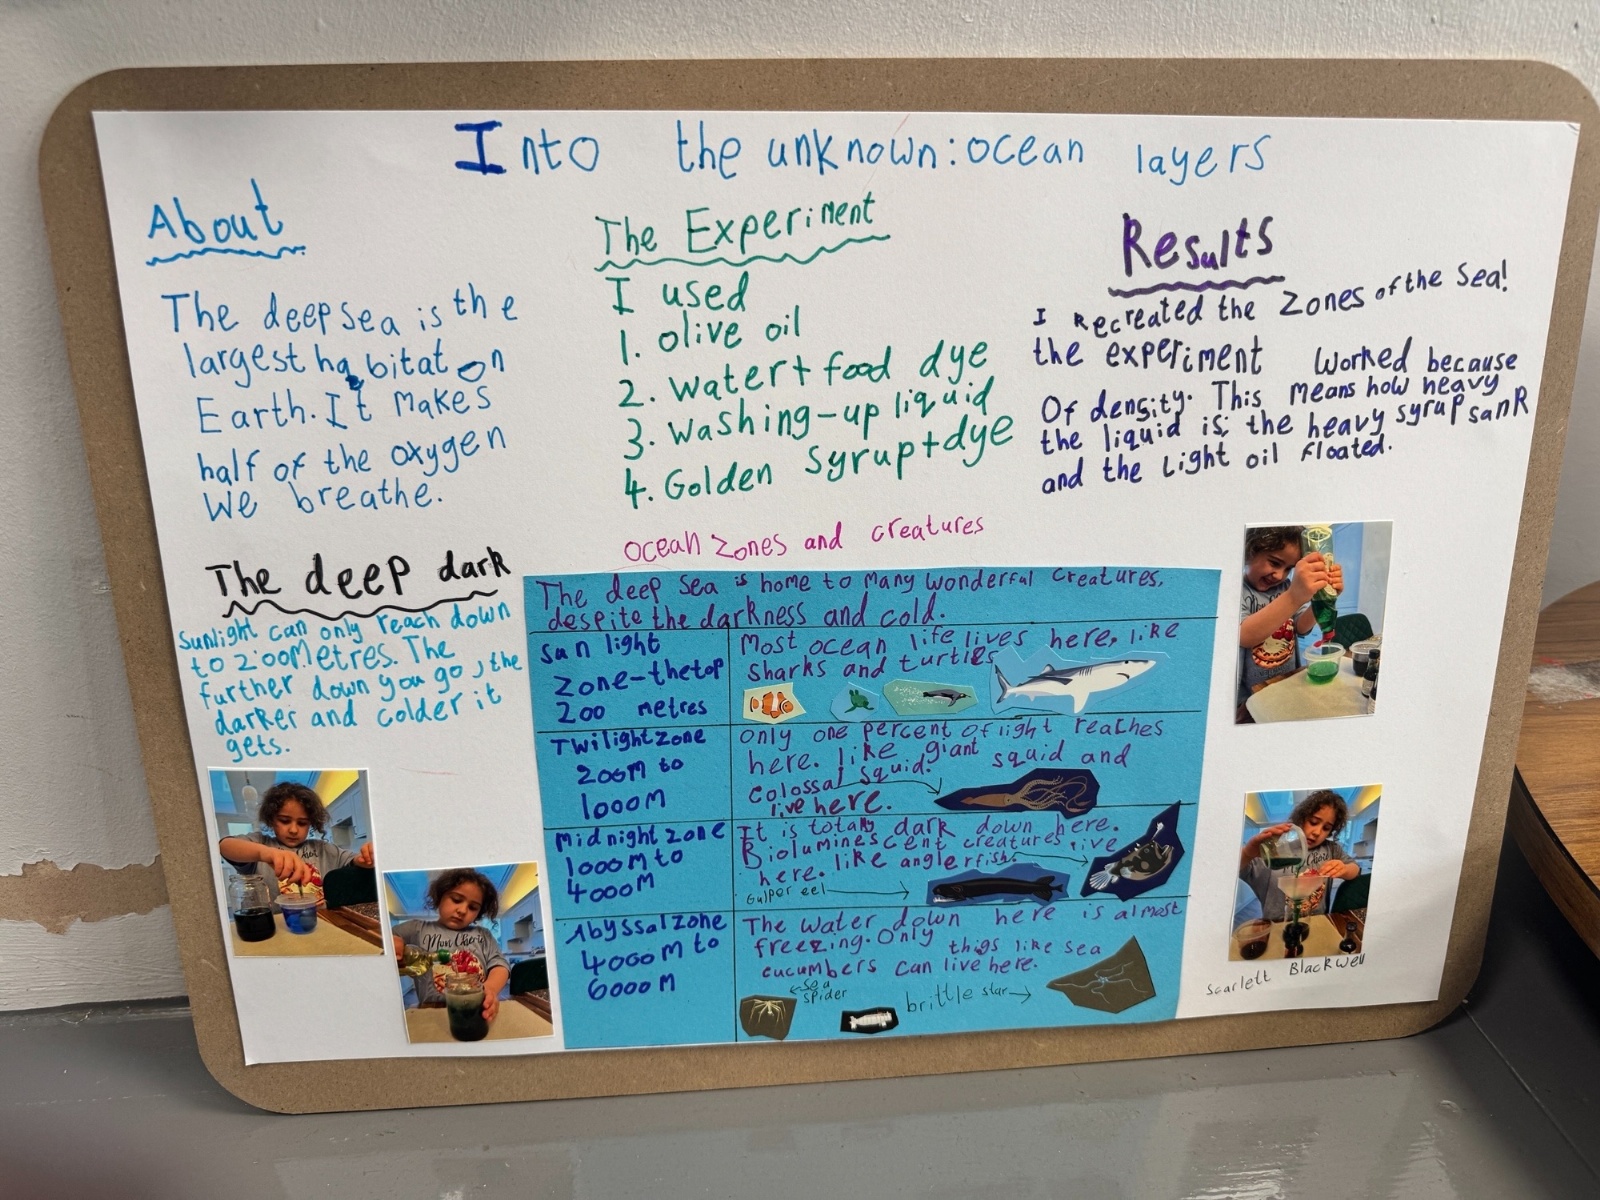 Into the unknown: ocean layers
About
The deep sea is the
largest habitat on
Earth. It makes
half of the oxygen
we breathe.
The deep dark
Sunlight can only reach down
to 200 metres. The
further down you go, the
darker and colder it
gets.
The Experiment
I used
1. olive oil
2. water + food dye
3. Washing-up liquid
4. Golden Syrup + dye
Results
I Recreated the Zones of the Sea!
the experiment worked because
Of density. This means how heavy
the liquid is; the heavy syrup sank
and the Light oil Floated.
ocean zones and creatures
The deep sea is home to many wonderful creatures,
despite the darkness and cold.
Sun light
zone-the top
200 metres
Most ocean life lives here, like
Sharks and turtles
Twilight zone
200m to
1000m
Only one percent of light reaches
here. like giant squid and
Colossal Squid.
live here.
Midnight zone
1000m to
4000m
It is totally dark down here.
Bioluminescent creatures live
here. like anglerfish.
Gulper eel
Abyssal zone
4000m to
6000m
The water down here is almost
freezing. Only thigs like sea
cucumbers can live here.
sea
spider
brittle star
Scarlett Blackwell